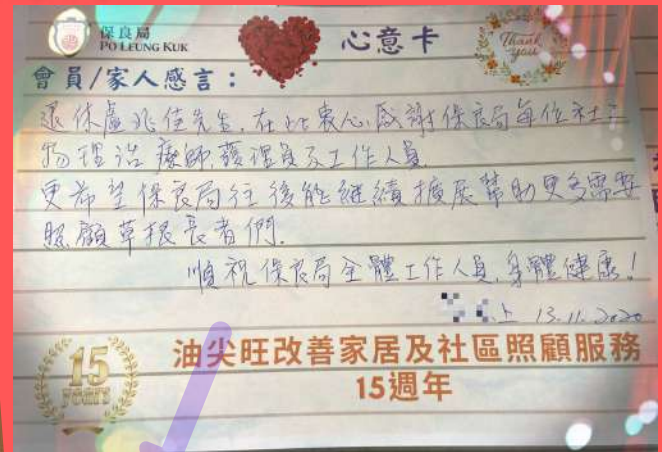 保良局
PO LEUNG KUK
心意卡
Thank you
會員/家人感言：
退休盧兆佳先生，在此衷心感謝保良局每位社工
物理治療師護理員及工作人員
更希望保良局往後能继續擴展幫助更多需要
照顧草根長者們.
順祝保良局全體工作人員,身體健康!
上 13.11.2020
15
YEARS
油尖旺改善家居及社區照顧服務
15週年